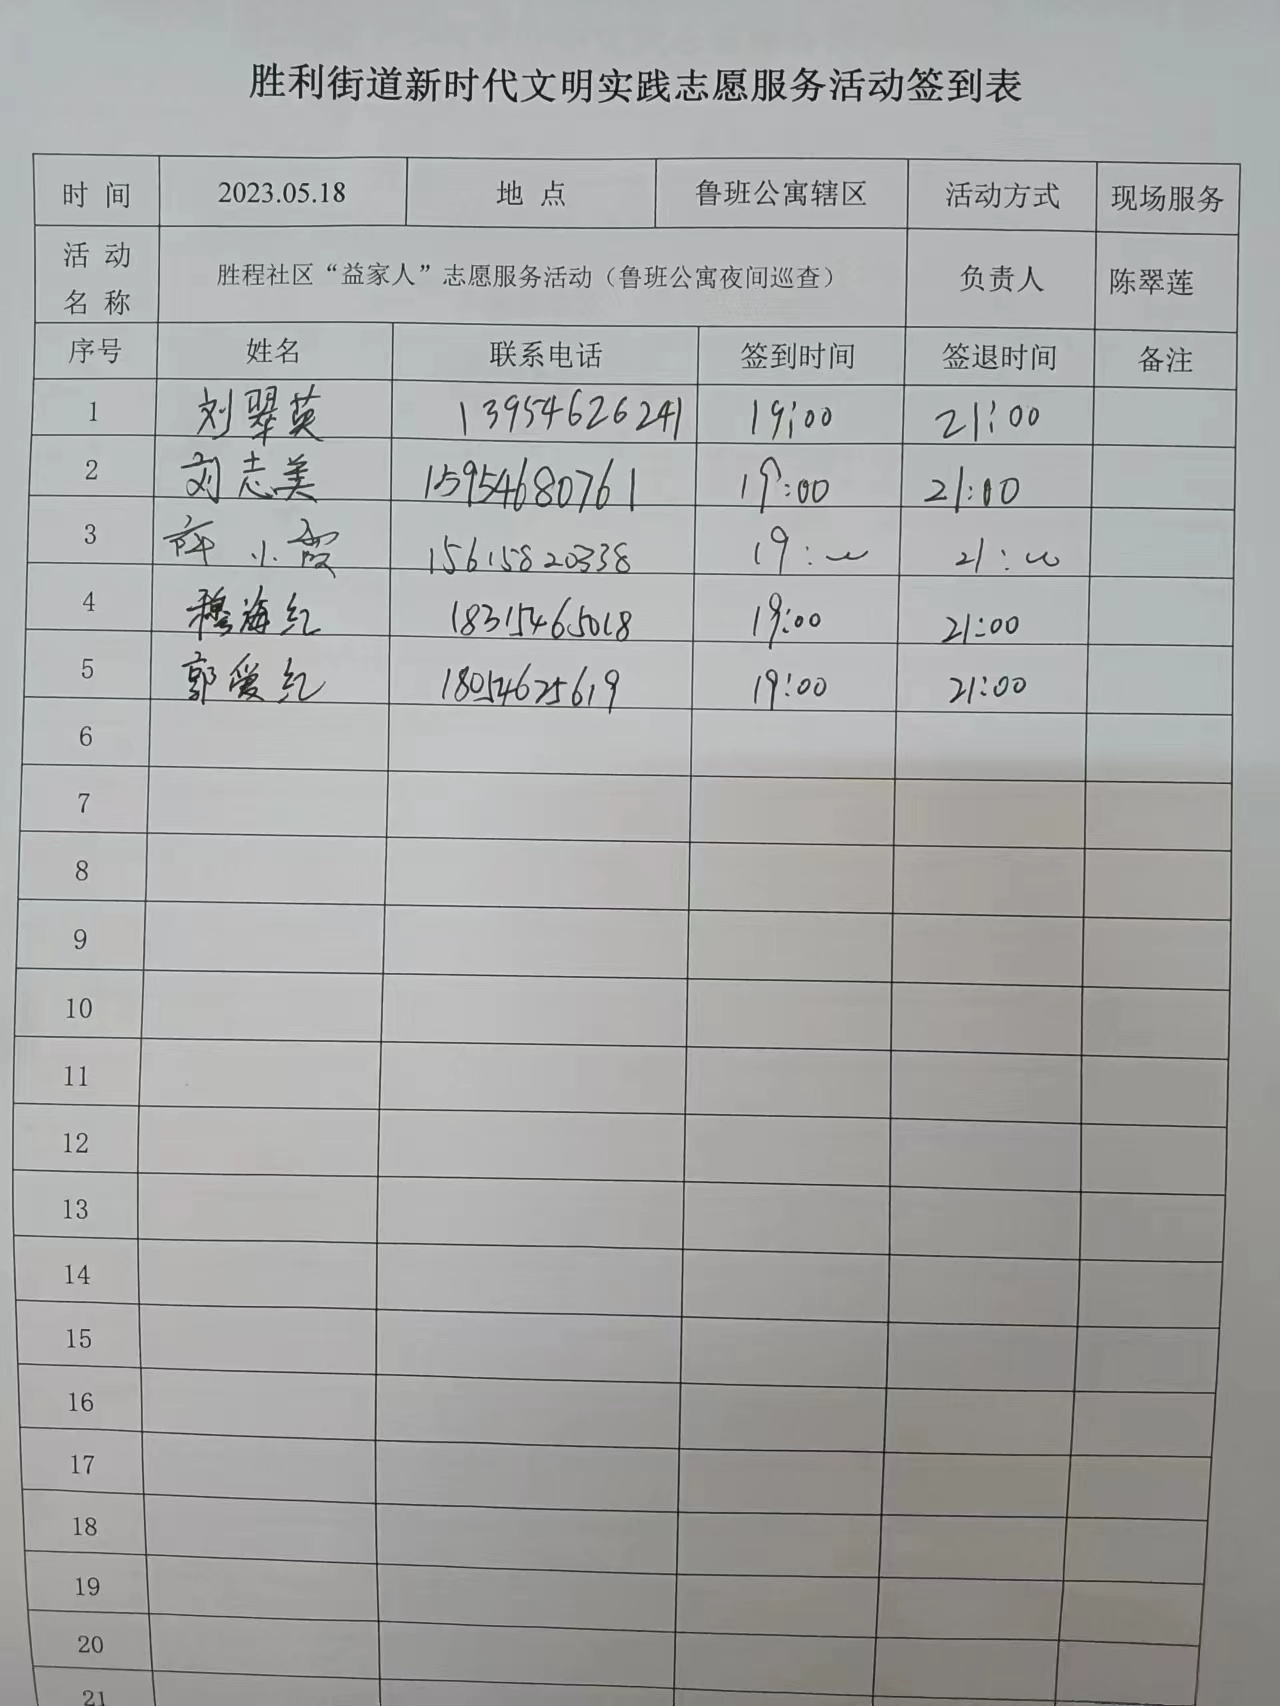 胜利街道新时代文明实践志愿服务活动签到表
时 间 2023.05.18 地 点 鲁班公寓辖区 活动方式 现场服务
活 动 名 称 胜程社区“益家人”志愿服务活动（鲁班公寓夜间巡查） 负责人 陈翠莲
序号 姓名 联系电话 签到时间 签退时间 备注
1 刘翠英 13954626241 19:00 21:00
2 刘志美 15954680761 19:00 21:00
3 许小霞 15615820338 19:00 21:00
4 穆海红 18315465018 19:00 21:00
5 郭爱红 18054625619 19:00 21:00
6
7
8
9
10
11
12
13
14
15
16
17
18
19
20
21